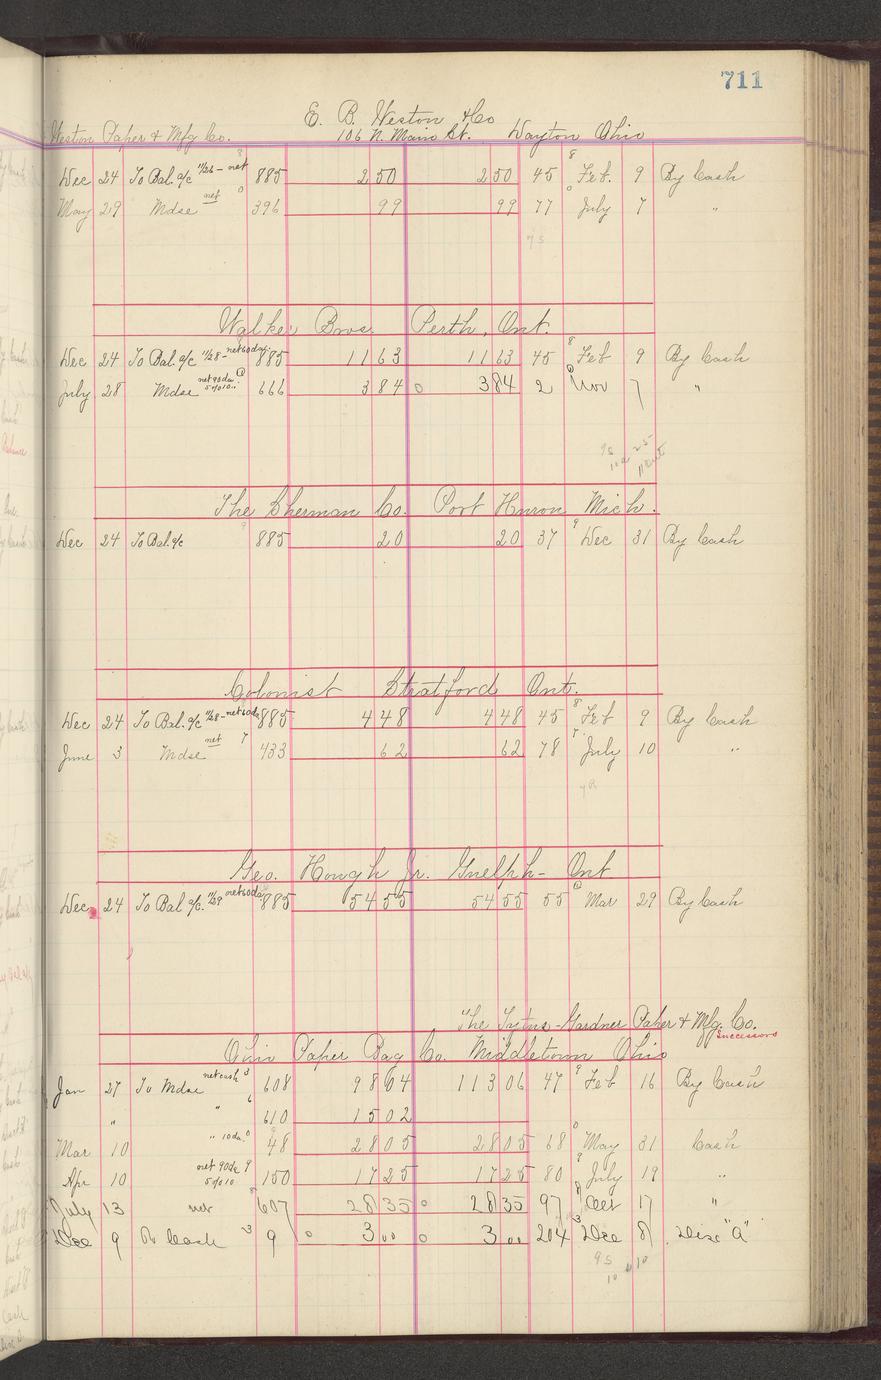 711
E. B. Weston & Co
Weston Paper & Mfg Co. 106 N. Main St. Dayton Ohio
Dec 24 To Bal a/c 11/26 - net 885 2 50 2 50 45 Feb. 9 By Cash
May 29 Mdse net 396 99 99 77 July 7 "
Walker Bros. Perth, Ont.
Dec 24 To Bal. a/c 11/28 - net 60 da. 885 11 63 11 63 45 Feb 9 By Cash
July 28 Mdse net 90 da. 5% 10 666 3 84 3 84 2 Nov 7 "
The Sherman Co. Port Huron Mich.
Dec 24 To Bal. a/c 885 20 20 37 Dec 31 By Cash
Colonist Stratford Ont.
Dec 24 To Bal. a/c 11/28 - net 60 da 885 4 48 4 48 45 Feb 9 By Cash
June 3 Mdse net 433 62 62 78 July 10 "
Geo. Hough Jr. Guelph - Ont
Dec 24 To Bal a/c. 11/29 net 60 da 885 54 55 54 55 55 Mar 29 By Cash
"The Tytus-Gardner Paper & Mfg. Co.
Successors
Ohio Paper Bag Co. Middletown Ohio
Jan 27 To Mdse net cash 608 98 04 113 06 47 Feb 16 By Cash
" " 610 15 02
Mar 10 " 10 da. 48 28 05 28 05 68 May 31 Cash
Apr 10 net 90 da 5% 10 150 17 25 17 25 80 July 19 "
July 13 net 607 28 35 28 35 97 Oct 17 "
Dec 9 To Cash 9 3 00 3 00 204 Dec 8 Disc "A"